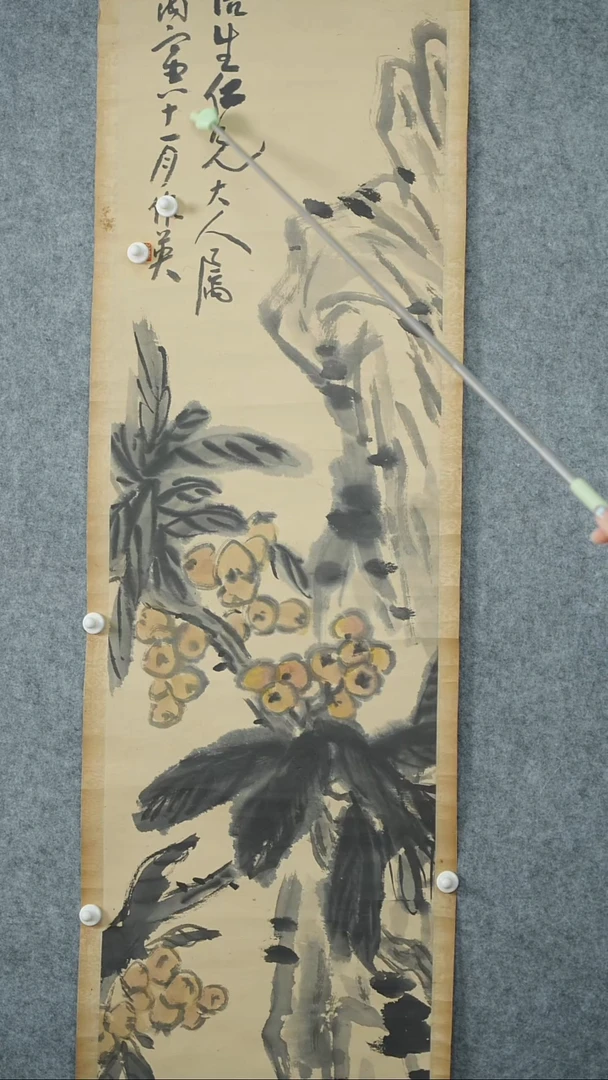 生仁兄大人属
丙寅八十一月作英